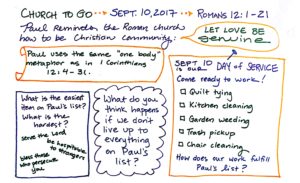 CHURCH TO GO → SEPT. 10, 2017 → ROMANS 12:1-21
Paul Reminds the Roman church
how to be Christian community:
LET LOVE BE
genuine
Paul uses the same "one body"
metaphor as in 1 Corinthians
12:4-31.
What is the easiest
item on Paul's list?
What is the
hardest?
serve the Lord
be hospitable
to strangers
bless those
who persecute
you
What do you
think happens
if we don't
live up to
everything
on Paul's
list?
SEPT 10 DAY of SERVICE
IS OUR
Come ready to work!
□ Quilt tying
□ Kitchen cleaning
□ Garden weeding
□ Trash pickup
□ Chair cleaning
How does our work fulfill
Paul's list?